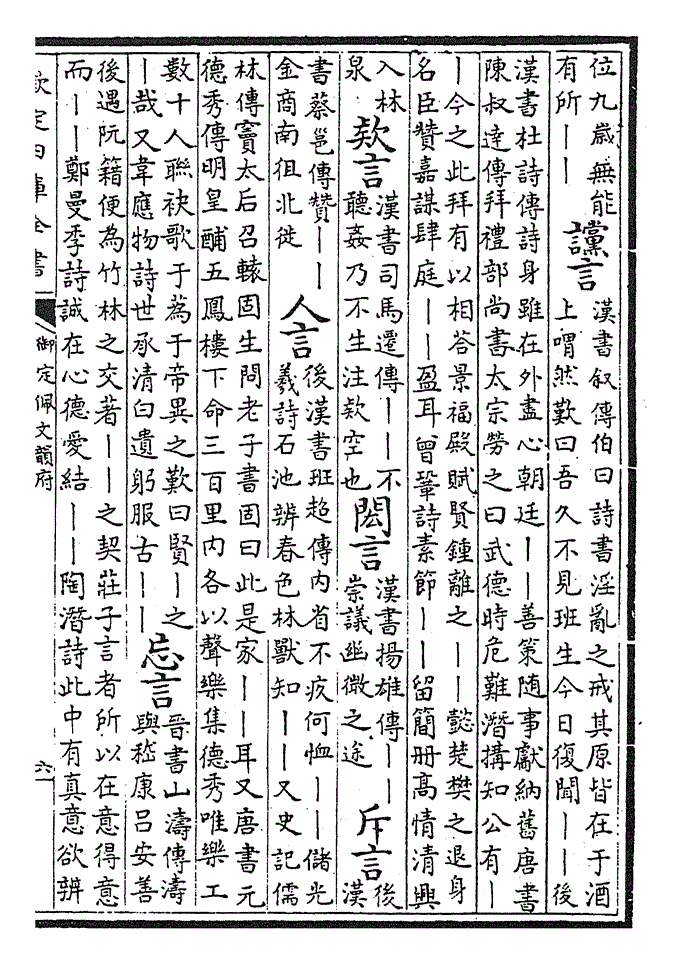 位九歲無能
有所｜｜
讜言
漢書叙傳伯曰詩書淫亂之戒其原皆在于酒
上喟然歎曰吾久不見班生今日復聞｜｜後
漢書杜詩傳詩身雖在外盡心朝廷｜｜善策随事獻納舊唐書
陳叔達傳拜禮部尚書太宗勞之曰武德時危難潛搆知公有｜
｜今之此拜有以相答景福殿賦賢鍾離之｜｜懿楚樊之退身
名臣贊嘉謀肆庭｜｜盈耳曾鞏詩素節｜｜留簡册高情清興
入林
泉
欵言
漢書司馬遷傳｜｜不
聽姦乃不生注欵空也
閎言
漢書揚雄傳｜｜
崇議幽微之途
斥言
後
漢
書蔡邕傳贊｜｜
金商南徂北徙
人言
後漢書班超傳内省不疚何恤｜｜儲光
羲詩石池辨春色林獸知｜｜又史記儒
林傳竇太后召轅固生問老子書固曰此是家｜｜耳又唐書元
德秀傳明皇酺五鳳樓下命三百里内各以聲樂集德秀唯樂工
數十人聯袂歌于為于帝異之歎曰賢｜之
｜哉又韋應物詩世承清白遺躬服古｜｜
忘言
晉書山濤傳濤
與嵇康吕安善
後遇阮籍便為竹林之交著｜｜之契莊子言者所以在意得意
而｜｜鄭曼季詩誠在心德愛結｜｜陶潛詩此中有真意欲辨
欽定四庫全書
御定佩文韻府
六